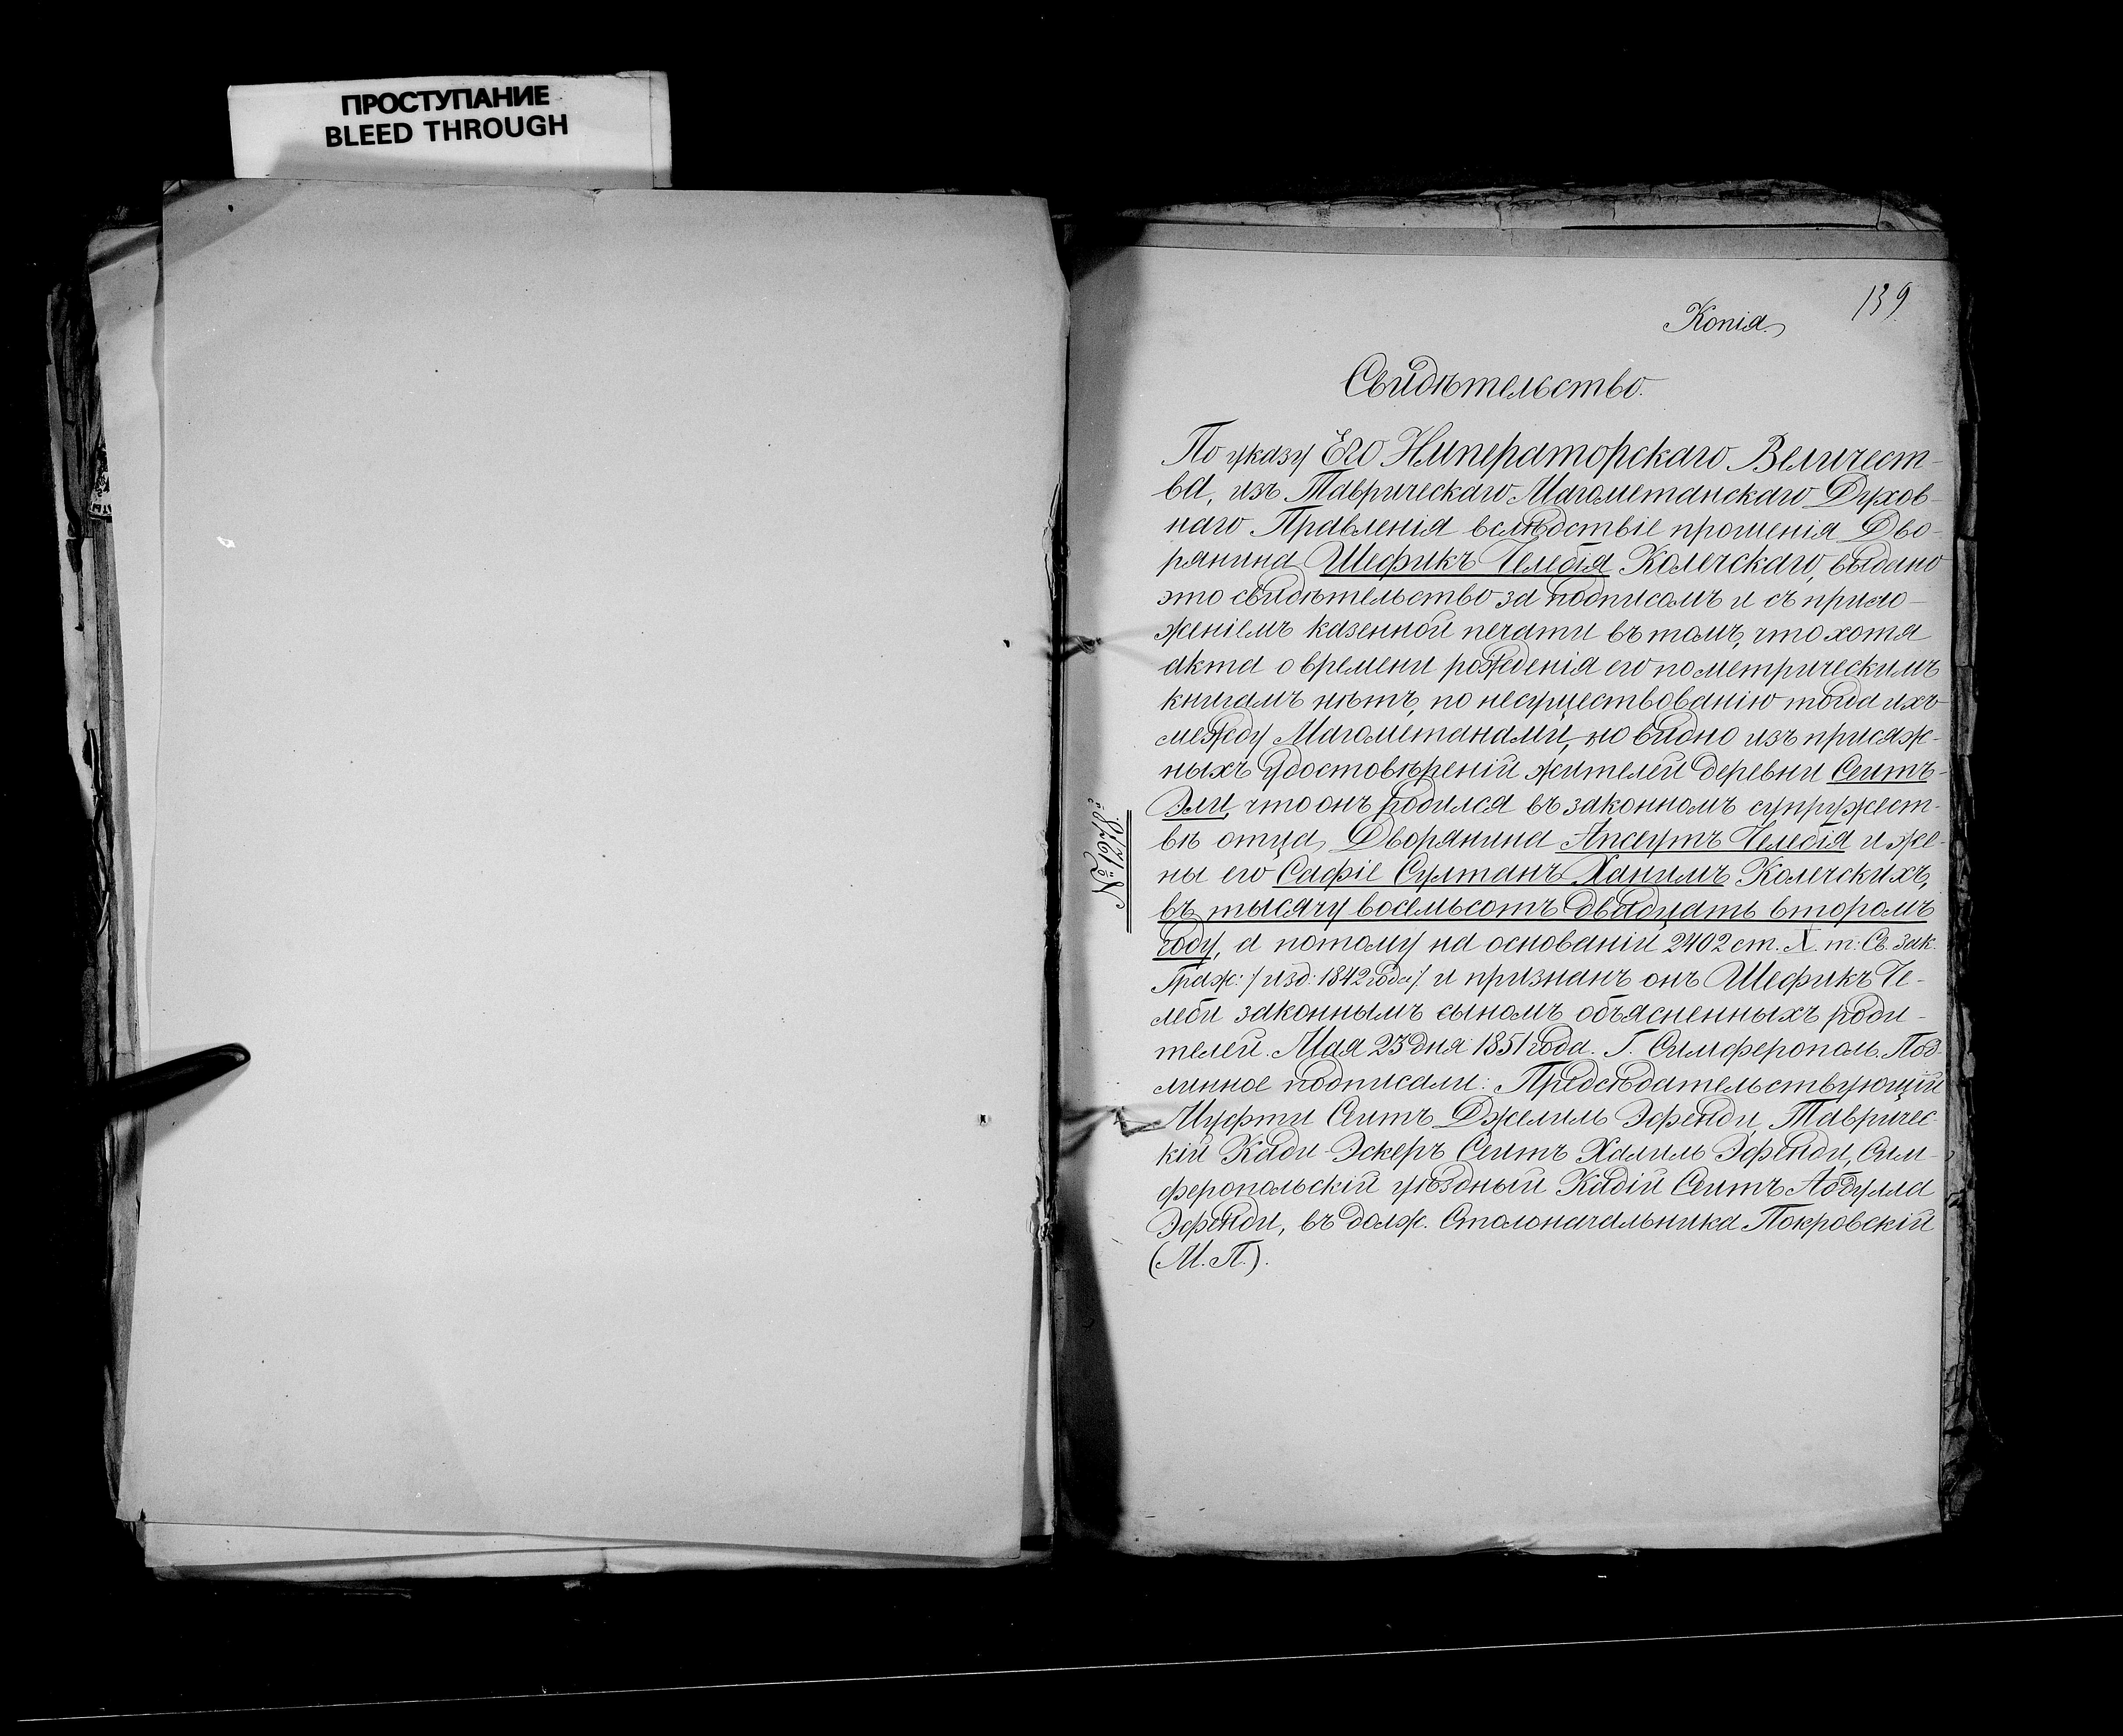 ПРОСТУПАНИЕ
BLEED THROUGH
139
Копія
Свидѣтельство.
По указу Его Императорскаго Величест-
ва, изъ Таврическаго Магометанскаго Духов-
наго Правленія вслѣдствіе прошенія Дво-
рянина Шефикъ Челебія Колечскаго, выдано
это свидѣтельство за подписомъ и съ прило-
женіемъ казенной печати въ томъ, что хотя
акта о времени рожденія его по метрическимъ
книгамъ нѣтъ, по несуществованію тогда ихъ
между Магометанами, но видно изъ присяж-
ныхъ удостовѣреній жителей деревни Сеитъ-
Эли, что онъ родился въ законномъ супружест-
вѣ отца Дворянина Апсеутъ Челебія и же-
ны его Сафіе Султанъ Ханимъ Колечскихъ,
въ тысячу восемьсотъ двадцать второмъ
году, а потому на основаніи 2402 ст. X. т: Св. Зак.
Граж: / изд: 1842 года / и признанъ онъ Шефикъ Че-
леби законнымъ сыномъ объясненныхъ роди-
телей. Мая 23 дня 1851 года. Г. Симферополь. Под-
линное подписали: Предсѣдательствующій
Муфти Сеитъ Джелиль Эфенди, Тавричес-
кій Кади-Эскеръ Сеитъ Халиль Эфенди, Сим-
феропольскій уѣздный Кадій Сеитъ Абдулла
Эфенди, въ долж. Столоначальника Покровскій
(М. П.).